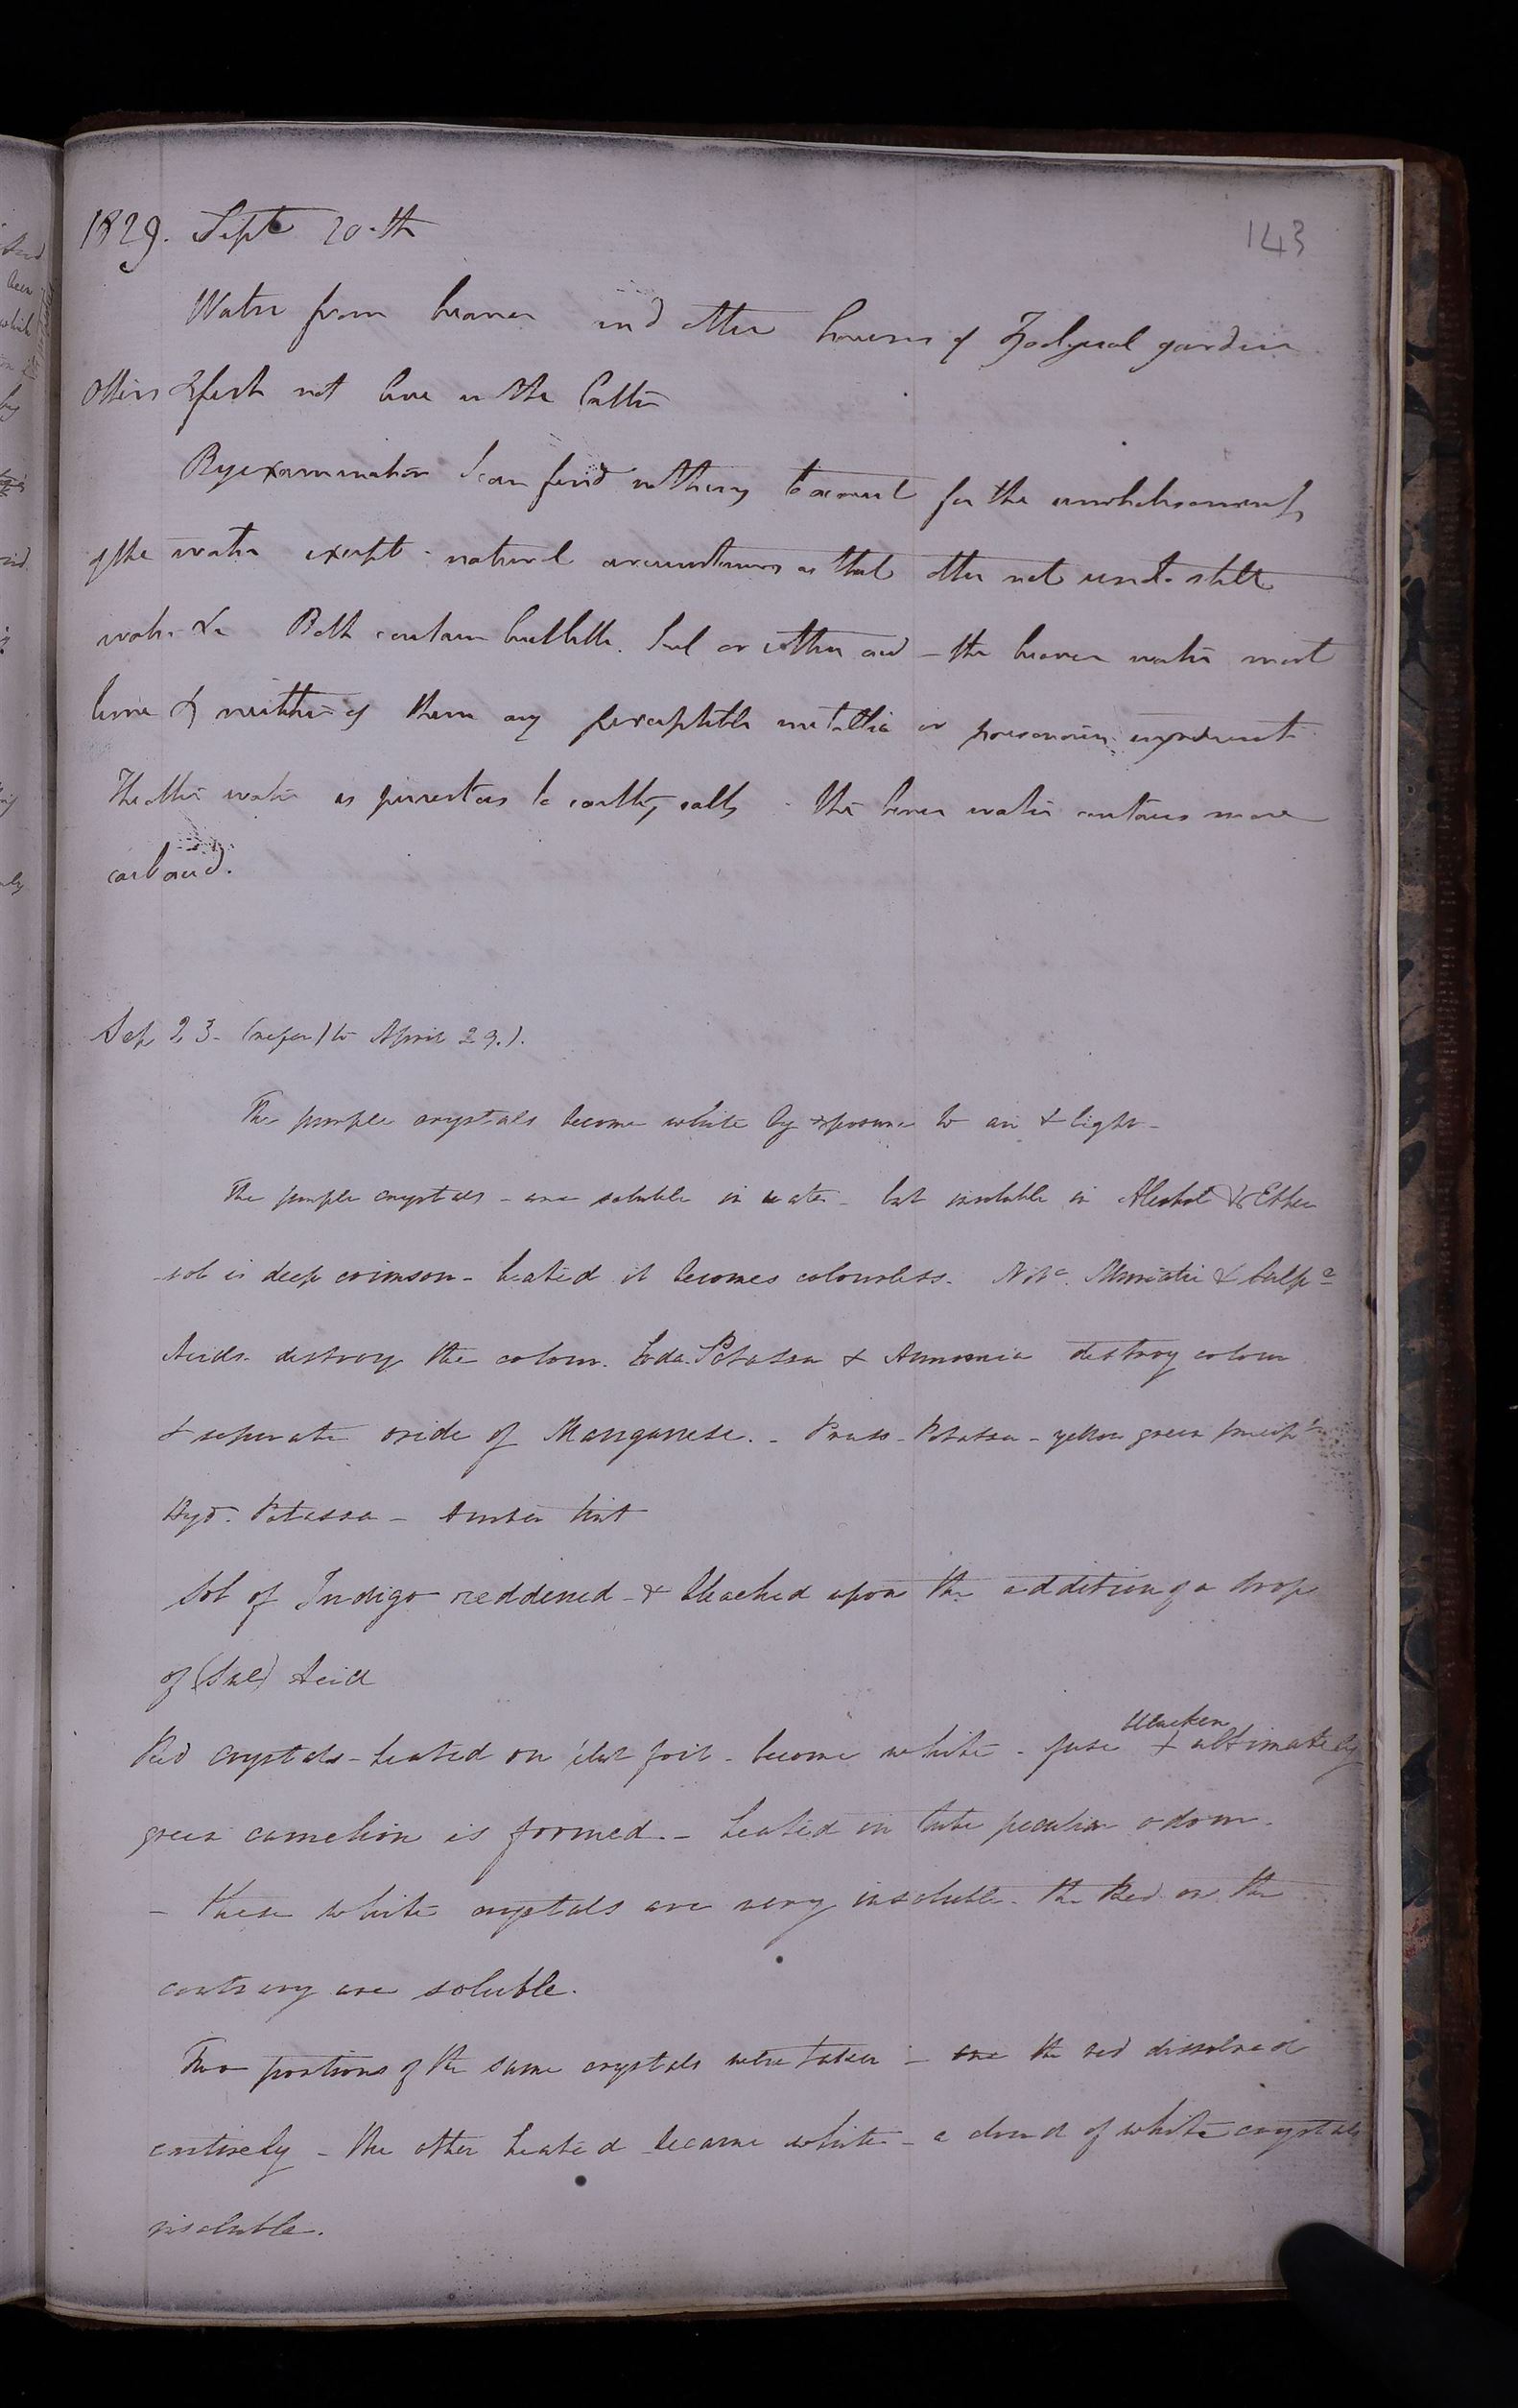 143
1829. Sept 20-th
Water from beaver and otter houses of Zoological gardens
Otters & fish not live in the latter
By examination I can find nothing to account for the unwholesomeness
of the water except natural circumstances as that otter not under still
water &c Both contain but little Sul or other acid - the beaver water most
lime & neither of them any perceptible metallic or poisonous ingredient
The otter water is purest as to earthy salts - the beaver water contains more
carb acid.
Sep 23. (refer) to April 29.).
The purple crystals become white by exposure to air & light -
The purple crystals - are soluble in water - but insoluble in Alcohol & Ether
sol is deep crimson - heated it becomes colourless. Nitc. Muriatic & Sulpc
Acids destroy the colour. Soda. Potassa & Ammonia destroy colour
& separate oxide of Manganese. - Pruss. Potassa - yellow green precipt
Hyd. Potassa - Amber tint
Sol of Indigo reddened - & bleached upon the addition of a drop
of (Sul) Acid
Red crystals - heated on plat foil - become white - fuse blacken & ultimately
green camelion is formed. - heated in tube peculiar odour.
- these white crystals are very insoluble. the Red on the
contrary are soluble.
Two portions of the same crystals were taken - one the red dissolved
entirely - the other heated became white - a cloud of white crystals
insoluble.